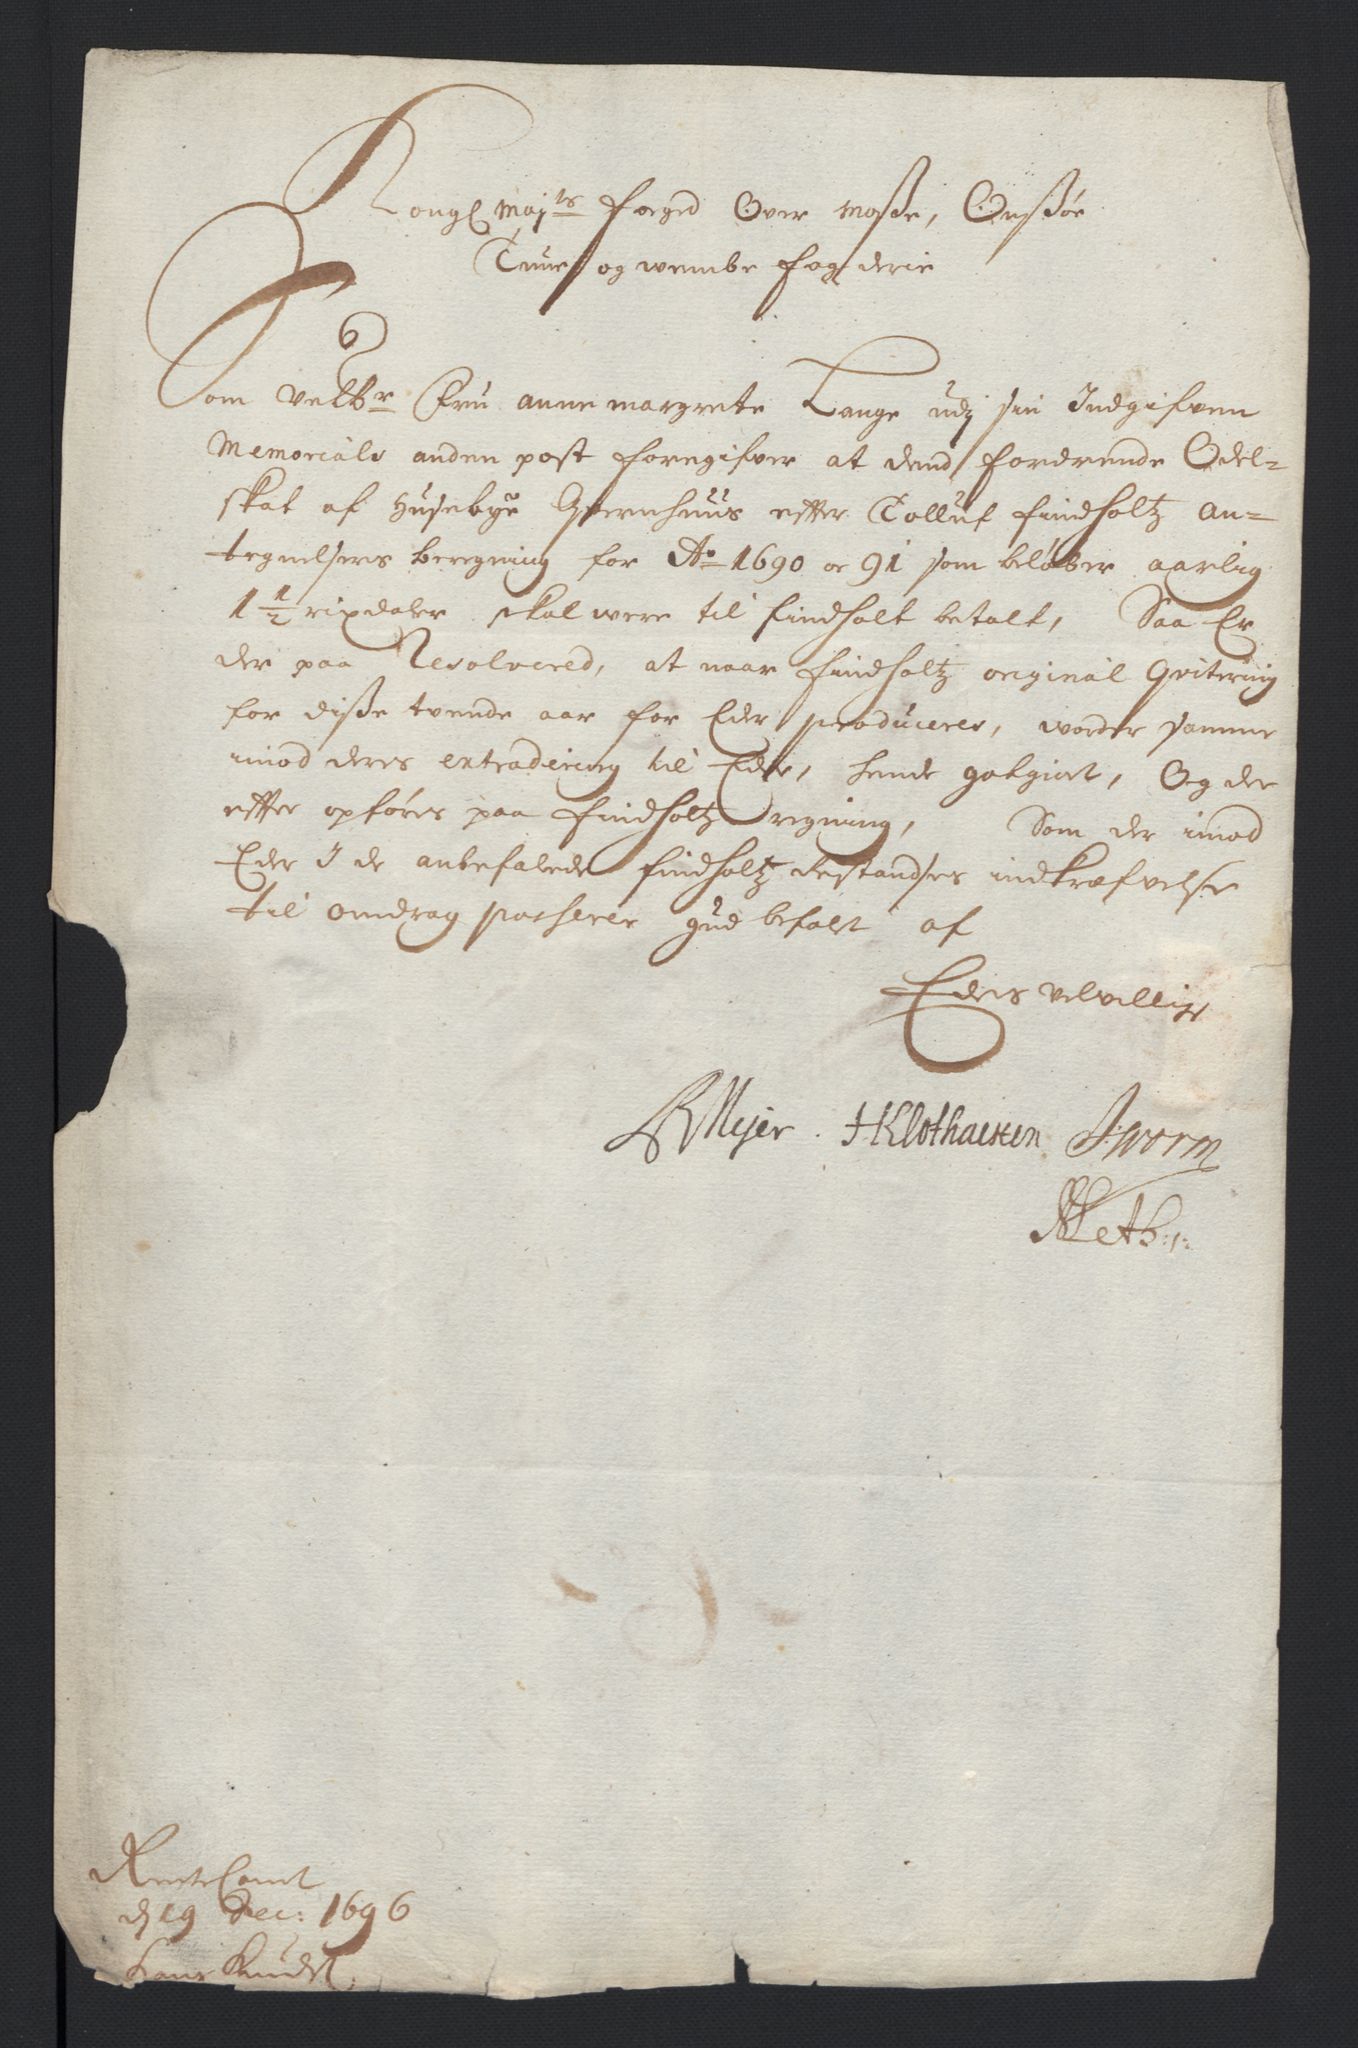 Kongl Maj.ts foged Over Mosse, Onsøe
Tune og wembe fogderie
Som Velb.r Fru anne margrete Lange udj sin Indgifven
Memorials anden post foregifver at dend fordrende Odel=
skat af Husebye Qvernhuus effter Tolluf findholtz an=
tegnelsers beregning for A.o 1690 oc 91 som beløber aarlig
1 1/2 rixdaler skal were til findholt betalt, Saa Er
der paa Resolvered, at naar findholtz original Qvitering
for disse tvende aar for Eder produceres, worder samme
imod deres extradering til Eder, hende godgiort, Og der
effter opføres paa findholtz regning, Som der imod
Eder I de anbefalede findholtz Restandses indkræfvelse
til omdrag passerer gud befalet af
Eders velvillige
Meyer H Klothacken J: worm
Rente Camt
dj 19 Dec: 1696